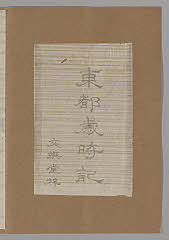 東都歳時記
文渓堂梓